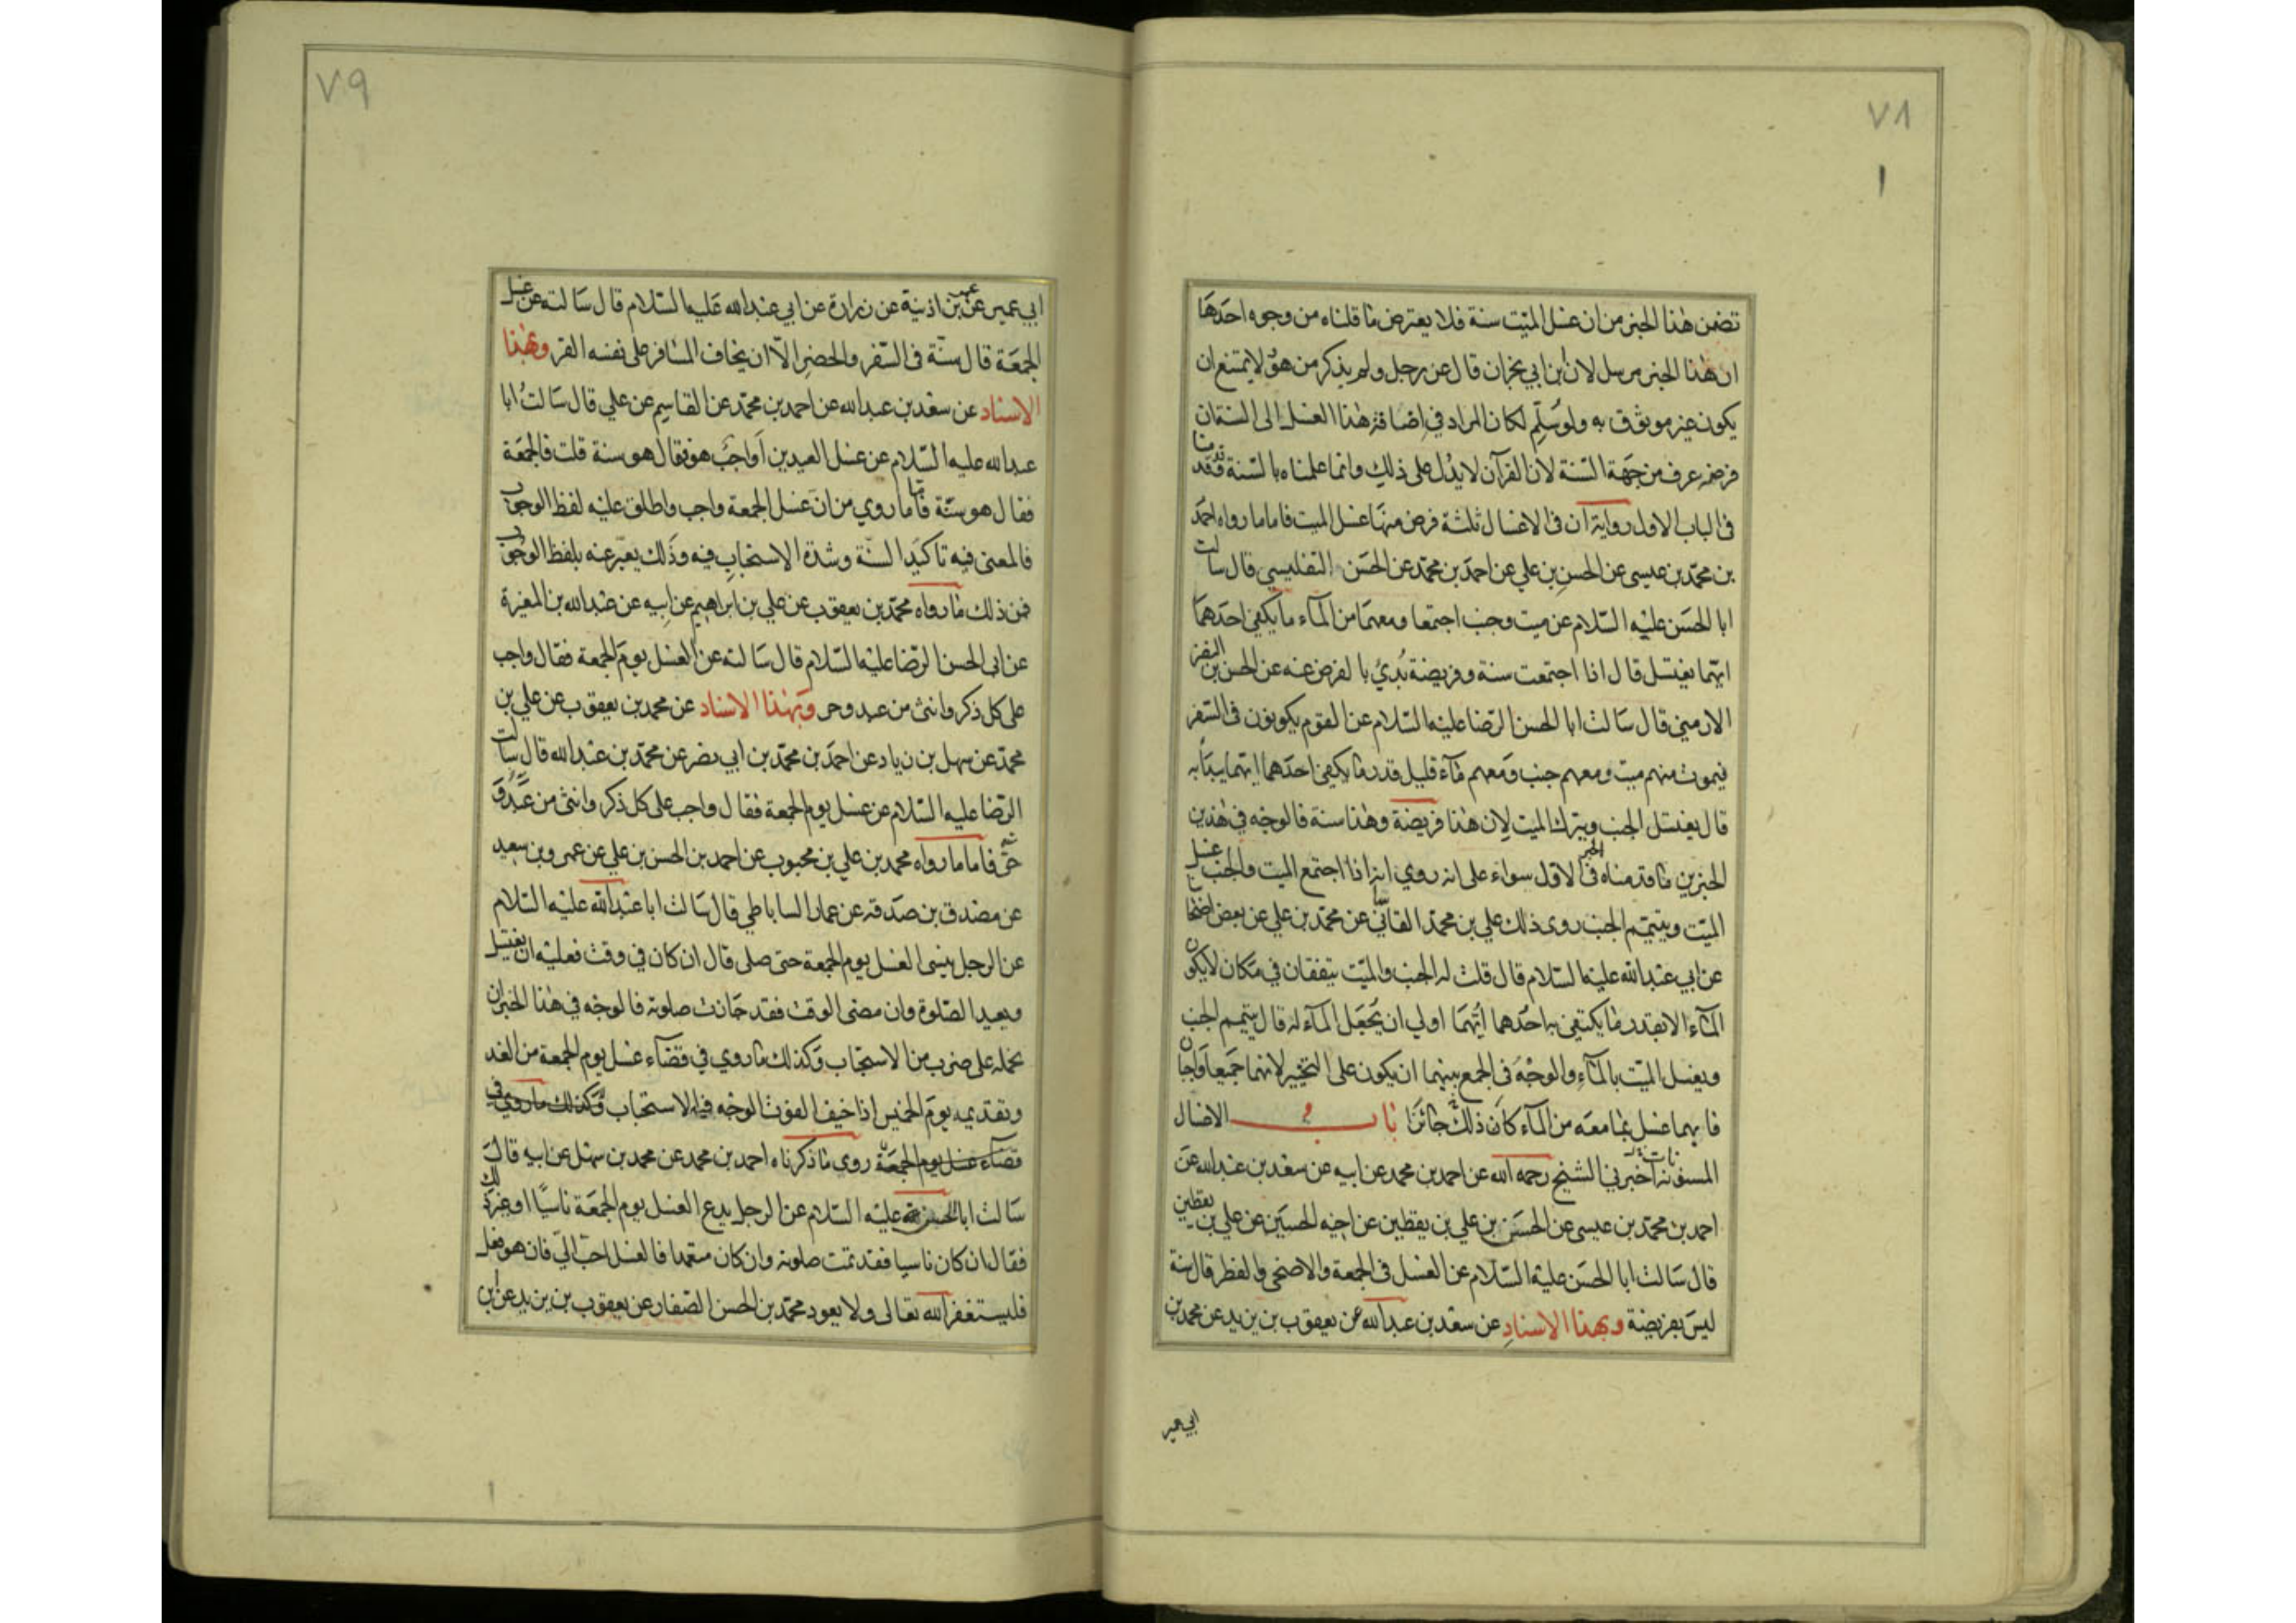 ٧٨
تضمن هذا الخبر من ان غسل الميّت سنة فلا يعترض ما قلناه من وجوه احدها
ان هذا الخبر مرسل لان ابن ابي نجران قال عن رجل ولم يذكر من هو لا يمتنع ان
يكون غير موثوق به ولو سُلّم لكان المراد في اضافة هذا الغسل الى السنة ان
فرضه عرف من جهة السّنة لان القرآن لا يدُل على ذلك وانما علمناه بالسّنة وقد قدمنا
فى الباب الاول رواية ان فى الاغسال ثلثة فرض منها غسل الميت فاما ما رواه احمد
بن محمّد بن عيسى عن الحسن بن علي عن احمد بن محمّد عن الحسَن التفليسي قال سالت
ابا الحسَن عليْه السّلام عن ميت وجنب اجتمعا ومعهمَا من المآء ما يكفي احدَهمَا
ايّهما يغتسل قال اذا اجتمعت سنة وفريضة بُدئ بالفرض عنه عن الحسن بن النضر
الارمني قال سَالت ابا الحسن الرّضا عليْه السّلام عن القوم يكونون فى السّفر
فيموت منهم ميت ومعهم جنب ومَعهم مَآء قليل قدر ما يكفي احدَهما ايّهما يبدَأ به
قال يغتسل الجنب ويترك الميت لان هذا فريضة وهذا سنة فالوجه في هذين
الخبرين ما قدمناه فى الخبر الاول سواء على انه روي انه اذا اجتمع الميت والجنب غسل
الميّت ويتيمّم الجنب روى ذلك علي بن محمّد القاساني عن محمّد بن علي عن بعض اصحابنا
عن ابي عبْدالله عليْه السّلام قال قلت له الجنب والميّت يتفقان في مَكان لا يكون
المآء الا بقدر ما يكتفي به احدُهما ايُّهمَا اولى ان يُجعَل المآء له قال يتيمم الجنب
ويغسل الميّت بالمآءِ والوجْهُ فى الجمع بينهما ان يكون على التخيير لانهما جَميعا واجبان
فايهما غسل بما معَه من المآء كان ذلك جائزًا باب الاغسال
المسنونات اخبَرني الشيخ رحمه الله عن احمد بن محمد عن ابيه عن سعْد بن عبْدالله عَن
احمد بن محمّد بن عيسى عن الحسَن بن علي بن يقطين عن اخيْه الحسَين عن علي بن يقطين
قال سَالت ابا الحسَن عليْه السّلام عن الغسْل فى الجمعة والاضحى والفطر قال سنة
ليسَ بفريضة وبهذا الاسنادِ عن سعْد بن عبدالله عن يعقوب بن يزيد عن محمد بن
ابي عمير
٧٩
ابي عمير عن عمر بن اذنية عن زرارة عن ابي عبْدالله عَليه السّلام قال سَالته عن غسل
الجمعَة قال سنّة فى السّفر والحضر الّا ان يخاف المسَافر على نفسه القر وبهذا
الاسناد عن سعْد بن عبدالله عن احمد بن محمّد عن القاسِم عن علي قال سَالتُ ابا
عبدالله عليه السّلام عن غسْل العيدين اَواجبٌ هو فقال هو سنة قلت فالجمعَة
فقال هو سنّة فاما ما روي من ان غسْل الجمعة واجب واطلق عليْه لفظ الوجوب
فالمعنى فيه تاكيد السنّة وشدة الاستحبابِ فيه وذَلك يعبّر عنه بلفظ الوجُوب
فمن ذلك مَا رواه محمّد بن يعقوب عن علي بن ابراهيم عن ابيه عن عبْدالله بن المغيرة
عن ابى الحسن الرّضا عليْه السّلام قال سَالته عن الغسْل يومَ الجمعة فقال واجب
على كل ذكر وانثى من عبد وحر وبهٰذا الاسناد عن محمد بن يعقوب عن علي بن
محمّد عن سهل بن زياد عن احمَد بن محمّد بن ابي نصر عن محمّد بن عبْدالله قال سَالت
الرّضا عليه السّلام عن غسْل يوم الجمعة فقال واجب على كل ذكر وانثى من عبد و
حرّ فاما ما رواه محمد بن علي بن محبوب عن احمد بن الحسن بن علي عن عمرو بن سعيد
عن مصدق بن صدَقة عن عمار الساباطي قال سَالت ابا عبْدالله عليْه السّلام
عن الرجل ينسى الغسل يوم الجمعة حتى صلى قال ان كان في وقت فعليْه ان يغتسل
ويعيد الصّلوة وان مضى الوقت فقد جَازت صلوته فالوجْه في هذا الخبر ان
نحمله على ضرب من الاستحباب وَكذلك ما روي في قضآء غسل يوم الجمعة من الغد
وتقديمه يومَ الخميس اذا خيف الفوت الوجْه فيه الاستحباب وَكذلك ما روي في
قضآء غسل يوم الجمعَة روي ما ذكرناه احمد بن محمد عن محمد بن سهْل عن ابيه قالَ
سَالت ابا الحسن عليْه السّلام عن الرجل يدع الغسْل يوم الجمعَة ناسيًا او غير ذلك
فقال ان كان ناسيا فقد تمت صلوته وان كان متعمدا فالغسْل احبّ اليّ فان هو فعل
فليستغفر الله تعالى ولا يعود محمّد بن الحسن الصّفار عن يعقوب بن يزيد عن ابن